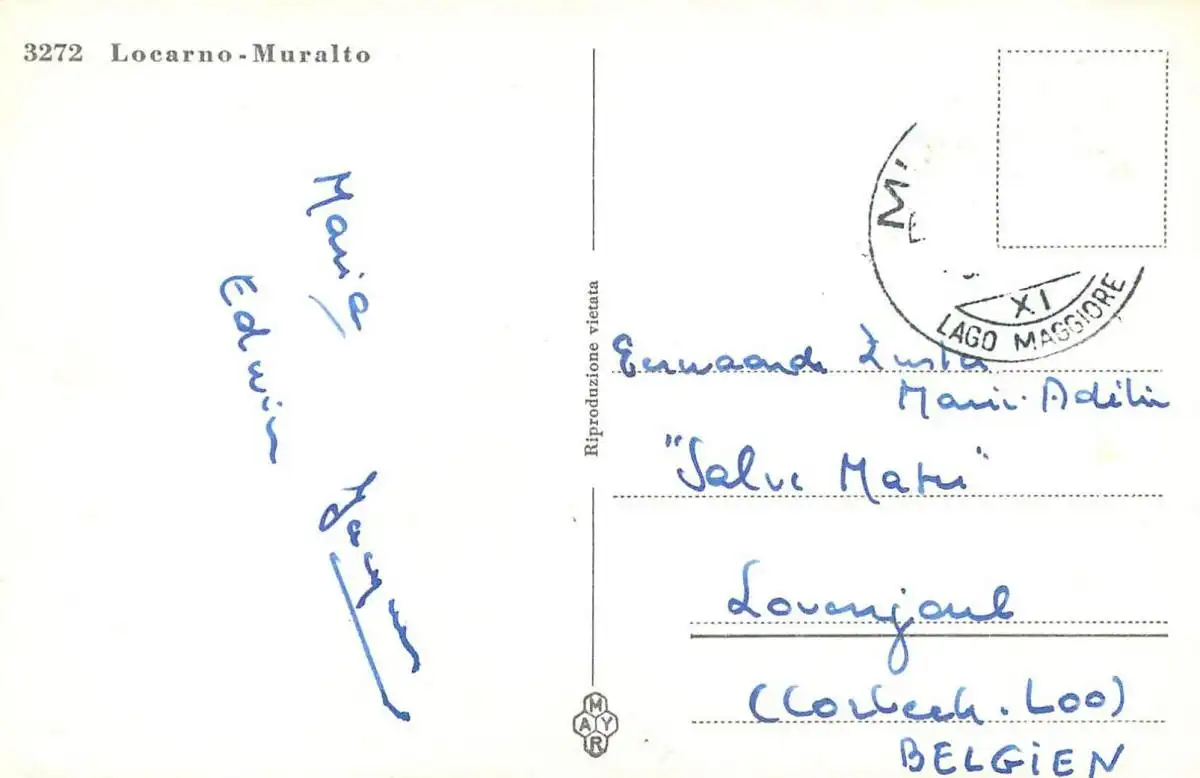 3272 Locarno-Muralto
Maria
Edwin
Jacques
Riproduzione vietata
MAYR
XI
LAGO MAGGIORE
Eerwaarde Zuster
Marie-Adilia
"Salve Mater"
Lovenjoul
(Corbeek-Loo)
BELGiEN